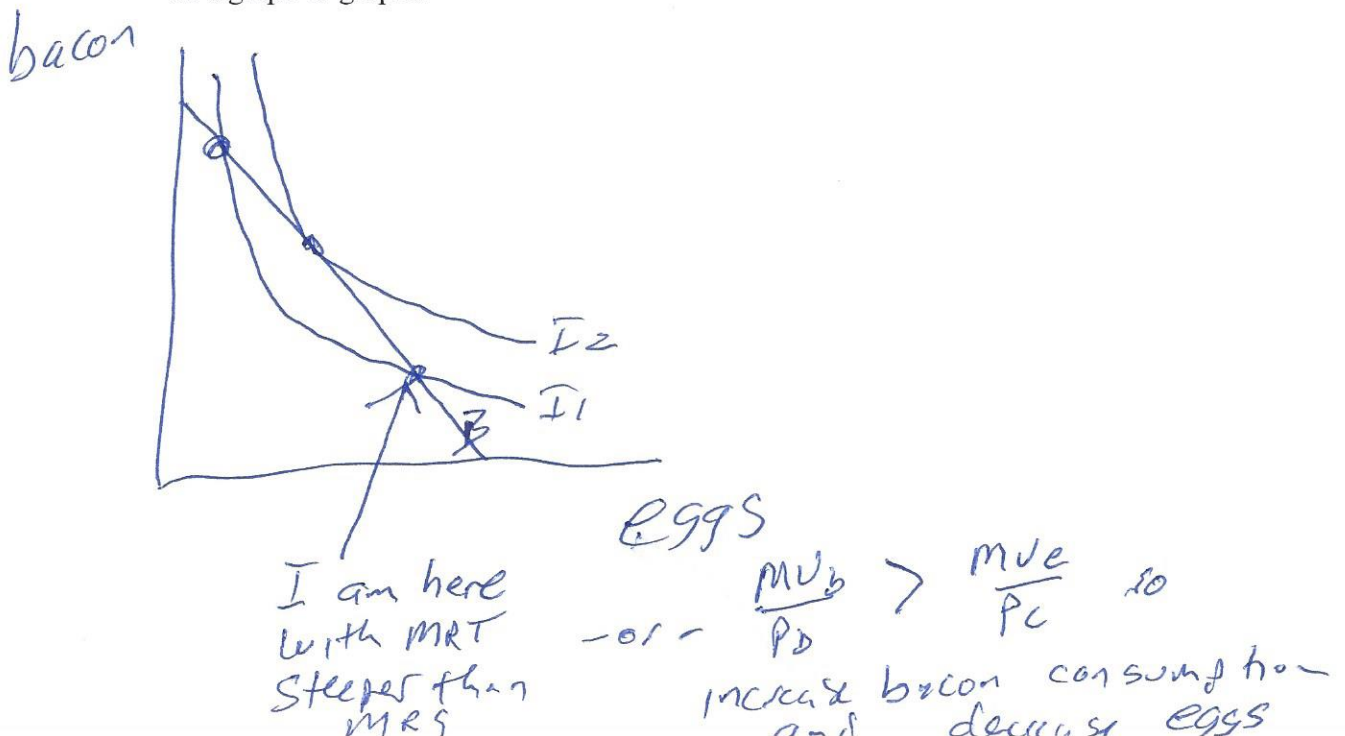 bacon
I2
I1
B
eggs
I am here
with MRT
steeper than
MRS
-or-
MUb
PB
>
MUe
Pe
so
increase bacon consumption
and decrease eggs